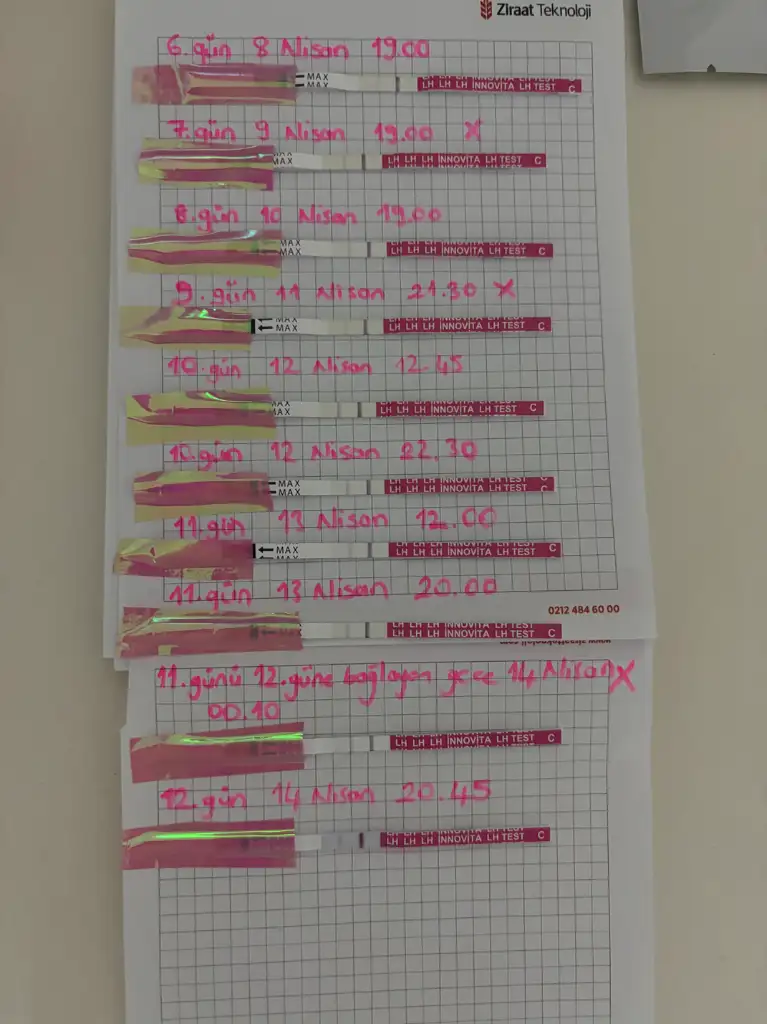 Ziraat Teknoloji
6.gün 8 Nisan 19.00
MAX
MAX
LH LH LH INNOVITA LH TEST C
7.gün 9 Nisan 19.00 X
MAX
MAX
LH LH LH INNOVITA LH TEST C
8.gün 10 Nisan 19.00
MAX
MAX
LH LH LH INNOVITA LH TEST C
9.gün 11 Nisan 21.30 X
MAX
MAX
LH LH LH INNOVITA LH TEST C
10.gün 12 Nisan 12.45
MAX
MAX
LH LH LH INNOVITA LH TEST C
10.gün 12 Nisan 22.30
MAX
MAX
LH LH LH INNOVITA LH TEST C
11.gün 13 Nisan 12.00
MAX
LH LH LH INNOVITA LH TEST C
11.gün 13 Nisan 20.00
0212 484 60 00
LH LH LH INNOVITA LH TEST C
www.ziraatteknoloji.com
11.günü 12.güne bağlayan gece 14 Nisan X
00.10
LH LH LH INNOVITA LH TEST C
12.gün 14 Nisan 20.45
LH LH LH INNOVITA LH TEST C